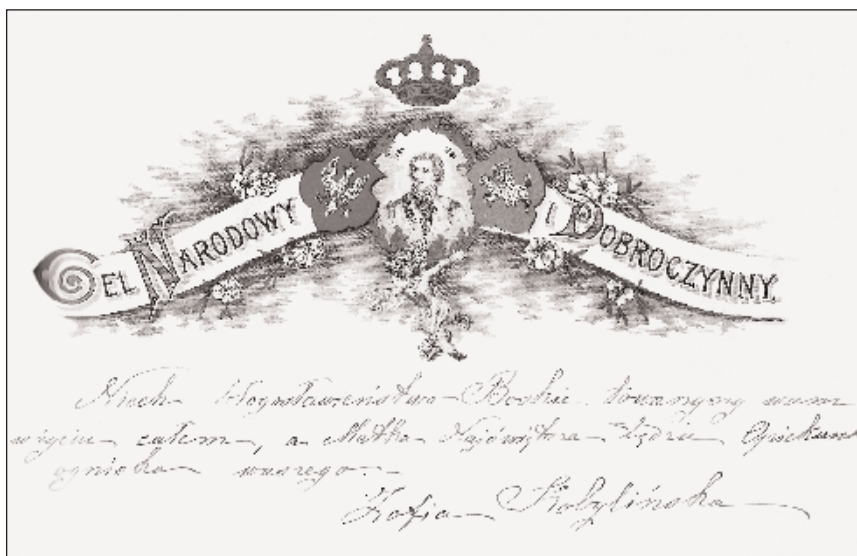 CEL NARODOWY I DOBROCZYNNY.
Niech błogosławieństwo Boskie towarzyszy wam
w życiu całem, a Matka Najświętsza będzie Opiekun
ogniska waszego.
Zofia Kobylińska